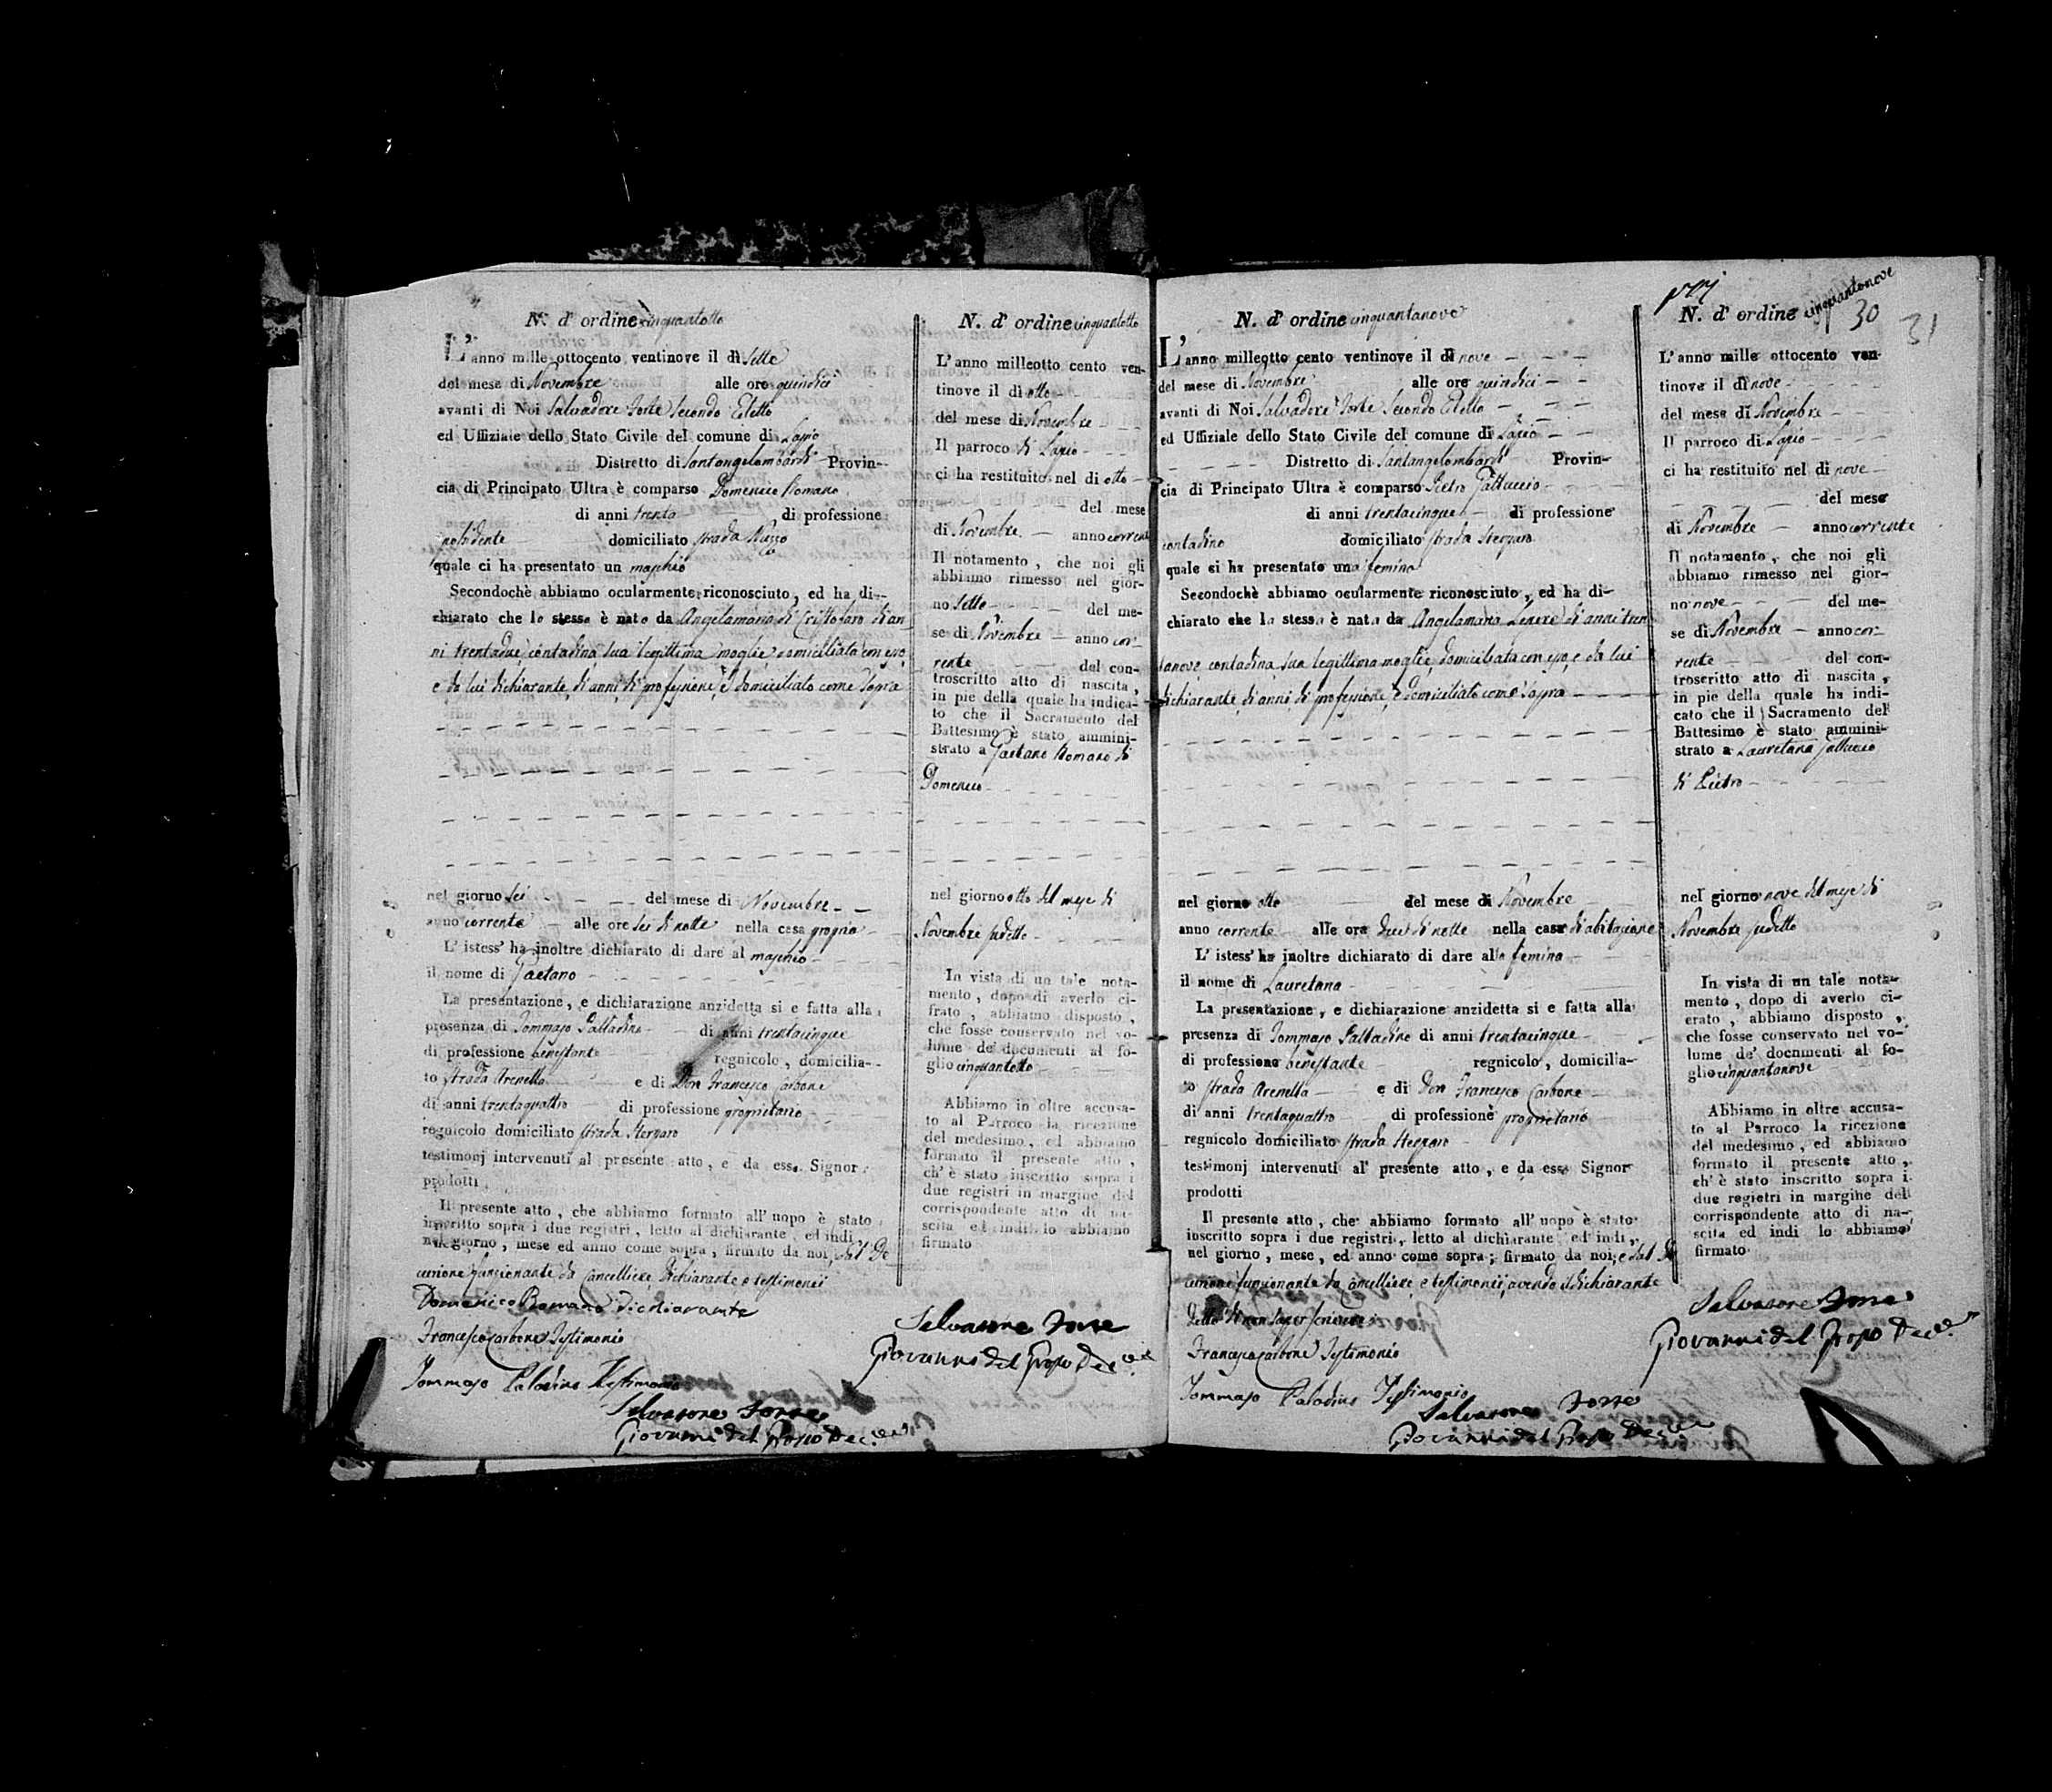 N. d' ordine cinquantotto
L'anno mille ottocento ventinove il dì sette
del mese di Novembre alle ore quindici
avanti di Noi Salvadore Forte Secondo Eletto
ed Uffiziale dello Stato Civile del comune di Lapio
Distretto di Santangelombardi Provin-
cia di Principato Ultra è comparso Domenico Romano
di anni trenta di professione
domiciliato strada
quale ci ha presentato un maschio
Secondochè abbiamo ocularmente riconosciuto, ed ha di-
chiarato che lo stesso è nato da Angelamaria di Cristofaro di an-
ni trentadue contadina sua legittima moglie domiciliata con esso,
e da lui dichiarante, di anni, di professione, e domiciliato come sopra
nel giorno sei del mese di Novembre
anno corrente alle ore sei di notte nella casa propria
L' istess' ha inoltre dichiarato di dare al maschio
il nome di Gaetano
La presentazione, e dichiarazione anzidetta si e fatta alla
presenza di Tommaso Palladino di anni trentacinque
di professione benestante regnicolo, domicilia-
to strada Arenella e di Don Francesco Carbone
di anni trentaquattro di professione proprietario
regnicolo domiciliato strada Sterparo
testimonj intervenuti al presente atto, e da esso Signor
prodotti.
Il presente atto, che abbiamo formato all' uopo è stato
inscritto sopra i due registri, letto al dichiarante, ed indi
nel giorno, mese ed anno come sopra, firmato da noi, dal De-
curione funzionante da Cancelliere, dichiarante e testimonii
Domenico Romano dichiarante
Francesco Carbone Testimonio
Tommaso Paladino Testimonio
Salvatore Forte
Giovanni del Grosso Dec.
N. d' ordine cinquantotto
L'anno milleotto cento ven-
tinove il dì otto
del mese di Novembre
Il parroco di Lapio
ci ha restituito nel dì otto
del mese
di Novembre anno corrente
Il notamento, che noi gli
abbiamo rimesso nel gior-
no sette del me-
se di Novembre anno cor-
rente del con-
troscritto atto di nascita,
in pie della quale ha indica-
to che il Sacramento del
Battesimo è stato ammini-
strato a Gaetano Romano di
Domenico
nel giorno otto del mese di
Novembre sudetto
In vista di un tale nota-
mento, dopo di averlo ci-
frato, abbiamo disposto,
che fosse conservato nel vo-
lume de' documenti al fo-
glio cinquantotto
Abbiamo in oltre accusa-
to al Parroco la ricezione
del medesimo, ed abbiamo
formato il presente atto,
ch' è stato inscritto sopra i
due registri in margine del
corrispondente atto di na-
scita ed indi lo abbiamo
firmato
Salvatore Forte
Giovanni del Grosso Dec.
N. d' ordine cinquantanove
L'anno milleotto cento ventinove il dì nove
del mese di Novembre alle ore quindici
avanti di Noi Salvadore Forte Secondo Eletto
ed Uffiziale dello Stato Civile del comune di Lapio
Distretto di Santangelombardi Provin-
cia di Principato Ultra è comparso Pietro Galluccio
di anni trentacinque di professione
contadino domiciliato strada Sterparo
quale ci ha presentato una femina
Secondochè abbiamo ocularmente riconosciuto, ed ha di-
chiarato che la stessa è nata da Angelamaria Lepere di anni tren-
tanove contadina sua legittima moglie domiciliata con esso, e da lui
dichiarante, di anni, di professione, e domiciliato come sopra
nel giorno otto del mese di Novembre
anno corrente alle ore dieci di notte nella casa di abitazione
L' istess' ha inoltre dichiarato di dare alla femina
il nome di Lauretana
La presentazione, e dichiarazione anzidetta si e fatta alla
presenza di Tommaso Palladino di anni trentacinque
di professione benestante regnicolo, domicilia-
to strada Arenella e di Don Francesco Carbone
di anni trentaquattro di professione proprietario
regnicolo domiciliato strada Sterparo
testimonj intervenuti al presente atto, e da esso Signor
prodotti
Il presente atto, che abbiamo formato all' uopo è stato
inscritto sopra i due registri, letto al dichiarante ed indi,
nel giorno, mese, ed anno come sopra, firmato da noi, e dal De-
curione funzionante da Cancelliere, e testimonii, avendo il dichiarante
detto di non saper scrivere
Francesco Carbone Testimonio
Tommaso Paladino Testimonio
Salvatore Forte
Giovanni del Grosso Dec.
30 31
N. d' ordine cinquantanove
L'anno mille ottocento ven-
tinove il dì nove
del mese di Novembre
Il parroco di Lapio
ci ha restituito nel dì nove
del mese
di Novembre anno corrente
Il notamento, che noi gli
abbiamo rimesso nel gior-
no nove del me-
se di Novembre anno cor-
rente del con-
troscritto atto di nascita,
in pie della quale ha indi-
cato che il Sacramento del
Battesimo è stato ammini-
strato a Lauretana Galluccio
di Pietro
nel giorno nove del mese di
Novembre sudetto
In vista di un tale nota-
mento, dopo di averlo ci-
erato, abbiamo disposto,
che fosse conservato nel vo-
lume de' docnmenti al fo-
glio cinquantanove
Abbiamo in oltre accusa-
to al Parroco la ricezione
del medesimo, ed abbiamo
formato il presente atto,
ch' è stato inscritto sopra i
due registri in margine del
corrispondente atto di na-
scita ed indi lo abbiamo
firmato
Salvatore Forte
Giovanni del Grosso Dec.